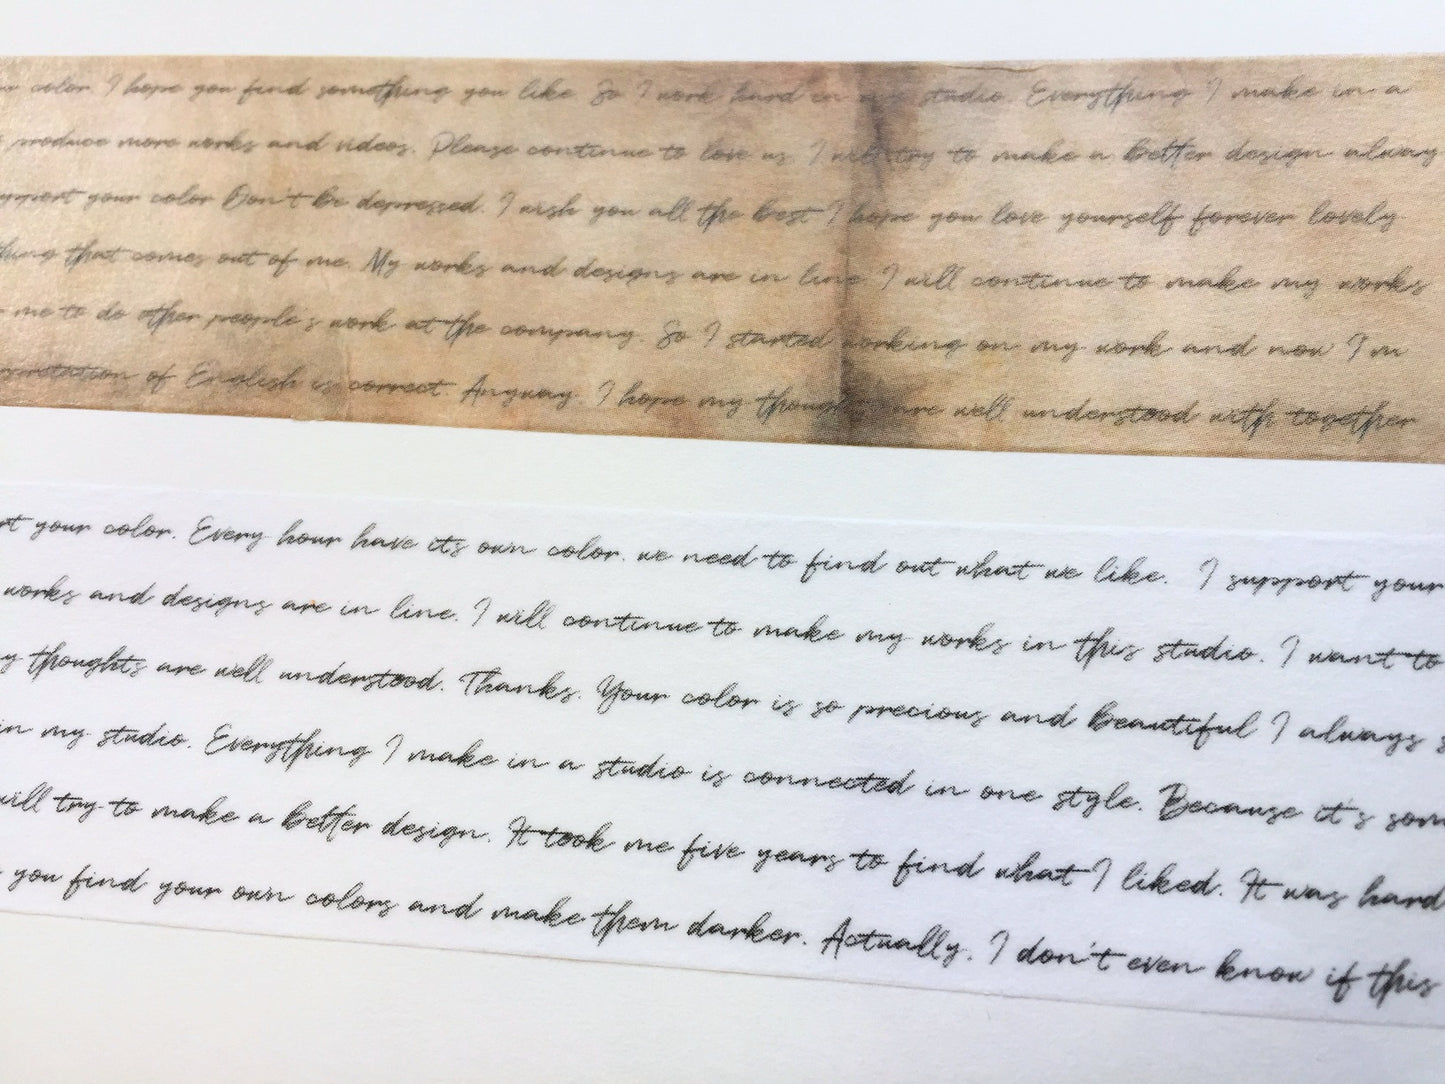 color. I hope you find something you like. So I work hard in my studio. Everything I make in a
produce more works and videos. Please continue to love us. I will try to make a better design alway
upport your color Don't be depressed. I wish you all the best I hope you love yourself forever lovely
thing that comes out of me. My works and designs are in line I will continue to make my works
me to do other people's work at the company. So I started working on my work and now I'm
rpretation of English is correct. Anyway. I hope my thoughts are well understood with together
rt your color. Every hour have its own color. we need to find out what we like. I support your
works and designs are in line. I will continue to make my works in this studio. I want to
y thoughts are well understood. Thanks. Your color is so precious and beautiful I always s
in my studio. Everything I make in a studio is connected in one style. Because it's som
will try to make a better design. It took me five years to find what I liked. It was hard
you find your own colors and make them darker. Actually, I don't even know if this